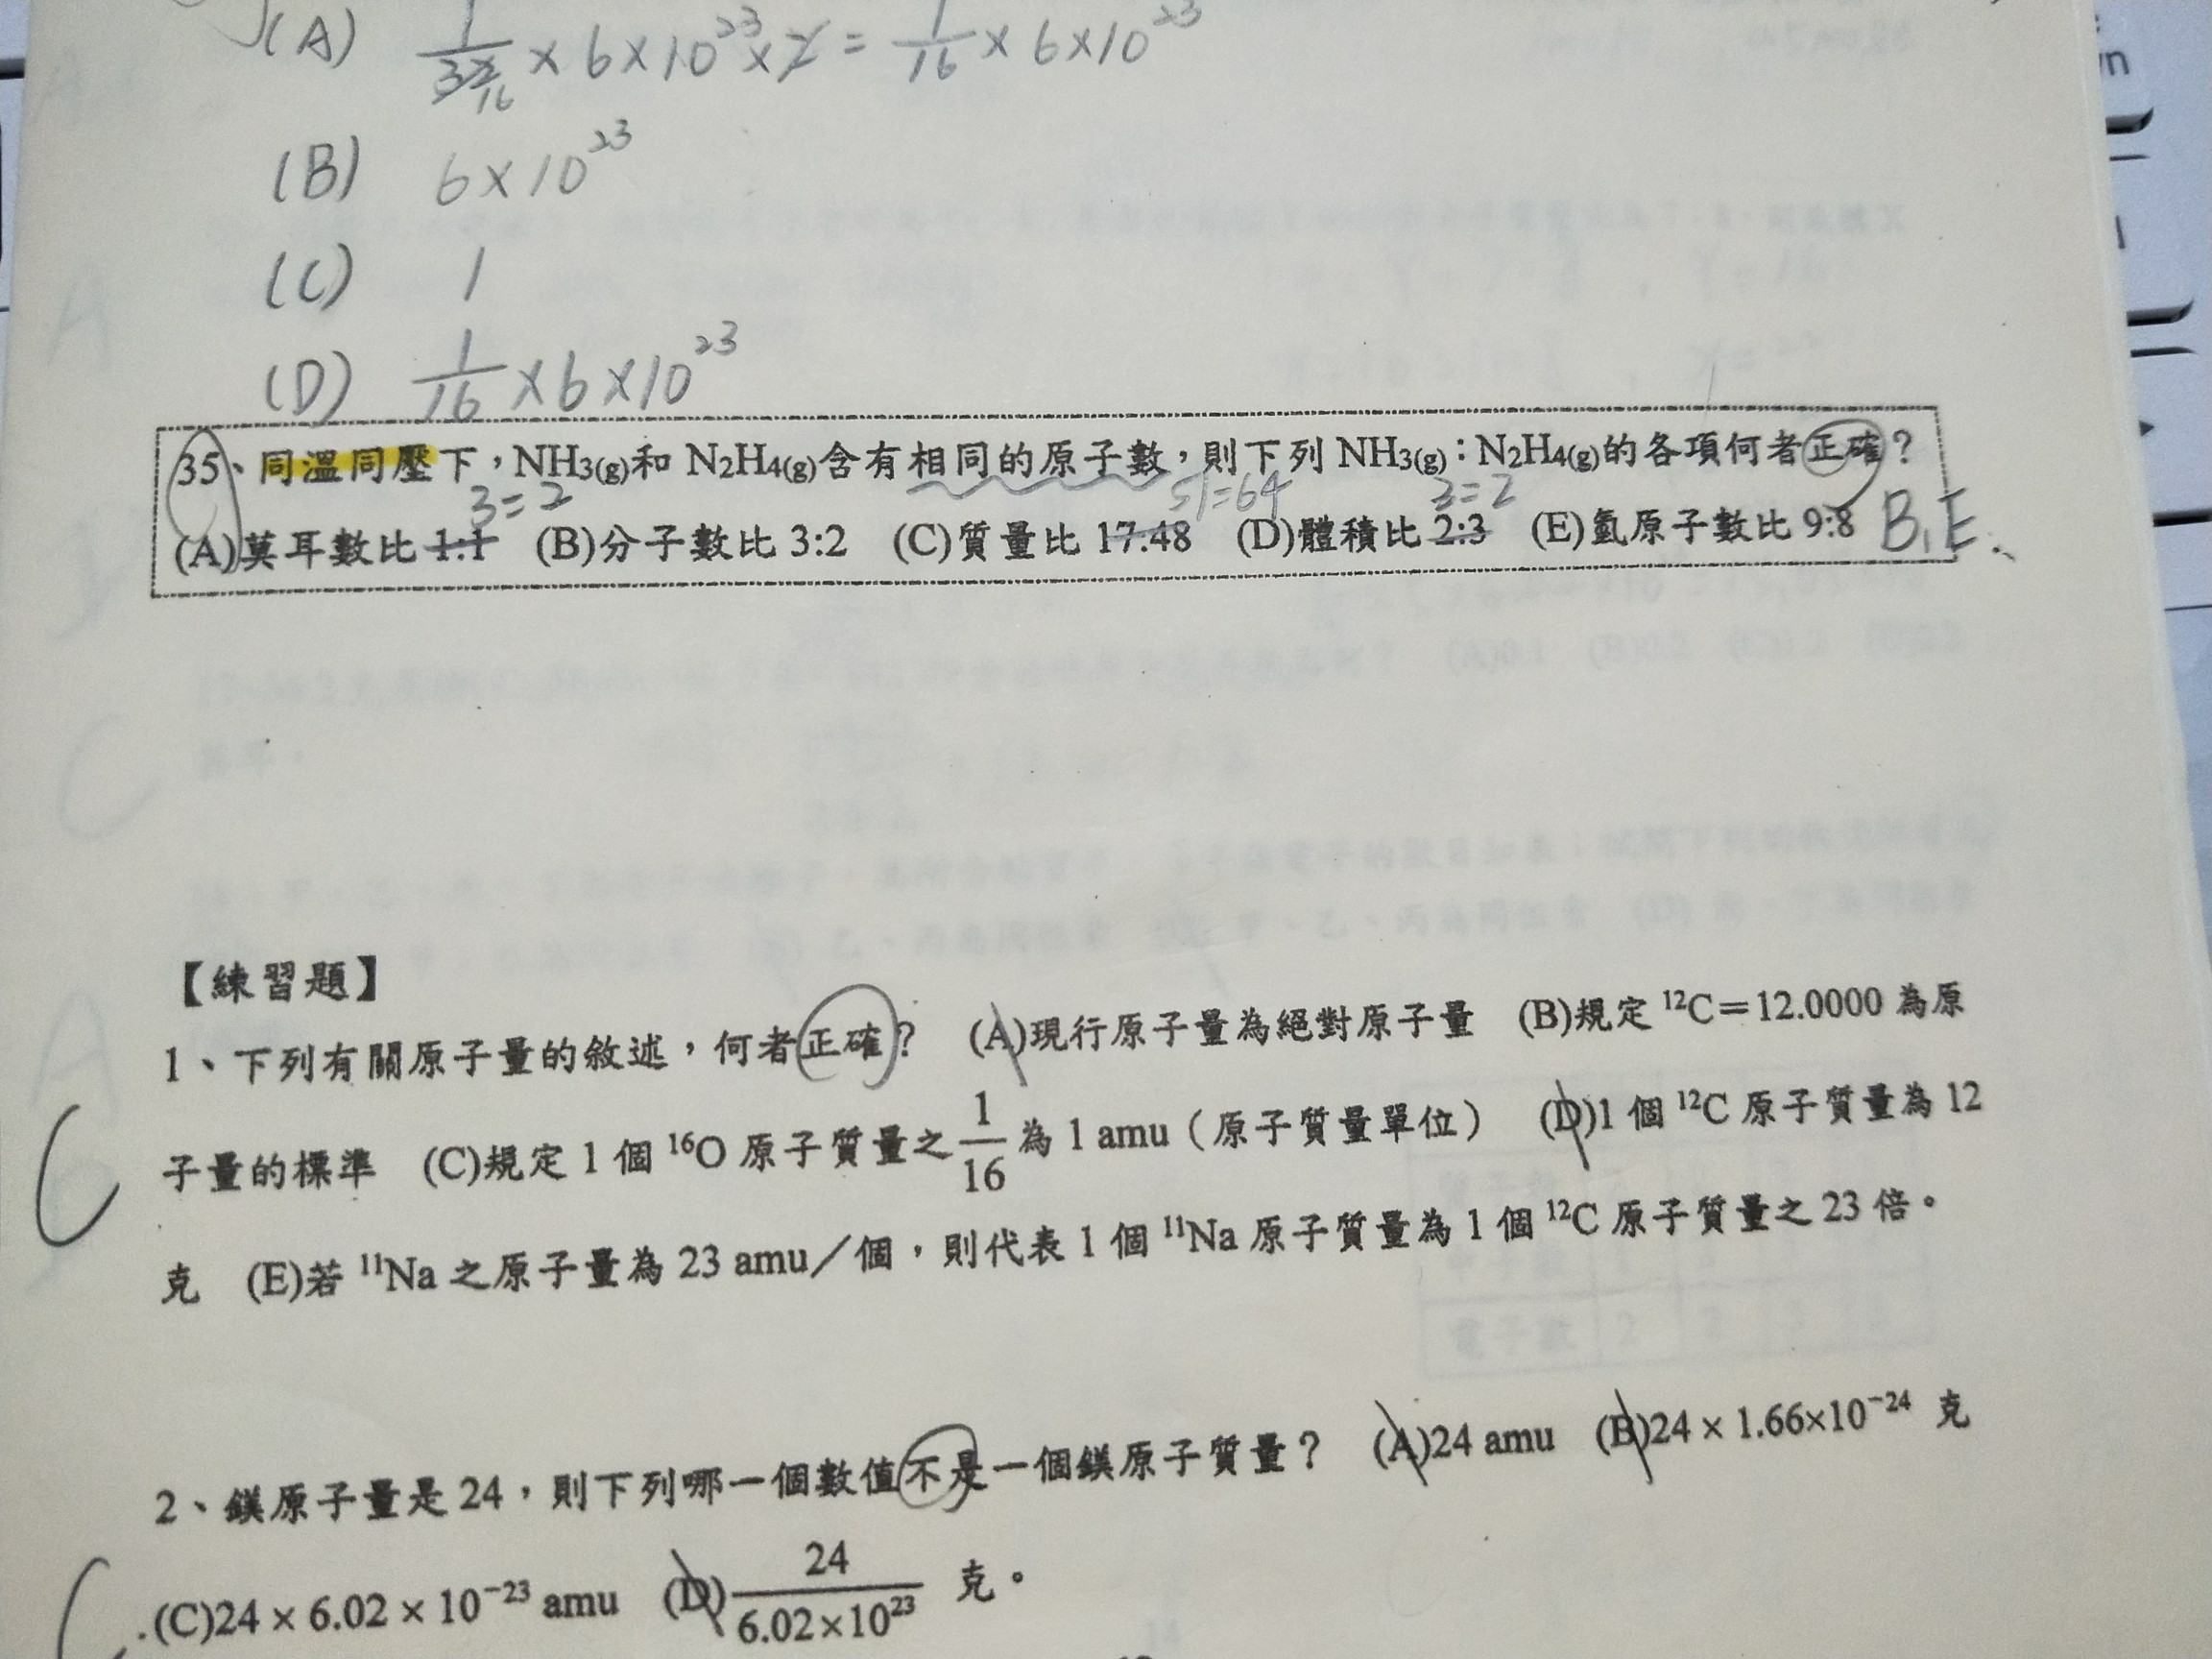 (A) 1/32 16 × 6×10²³×2 = 1/16 × 6×10²³
(B) 6×10²³
(C) 1
(D) 1/16 ×6×10²³
35、同溫同壓下，NH₃(g)和 N₂H₄(g)含有相同的原子數，則下列 NH₃(g)：N₂H₄(g)的各項何者正確？
3=2 51=64 3=2
(A)莫耳數比 1:1 (B)分子數比 3:2 (C)質量比 17:48 (D)體積比 2:3 (E)氫原子數比 9:8 B,E
【練習題】
1、下列有關原子量的敘述，何者正確？ (A)現行原子量為絕對原子量 (B)規定 ¹²C＝12.0000 為原
子量的標準 (C)規定 1 個 ¹⁶O 原子質量之 1/16 為 1 amu（原子質量單位） (D)1 個 ¹²C 原子質量為 12
C
克 (E)若 ¹¹Na 之原子量為 23 amu／個，則代表 1 個 ¹¹Na 原子質量為 1 個 ¹²C 原子質量之 23 倍。
2、鎂原子量是 24，則下列哪一個數值不是一個鎂原子質量？ (A)24 amu (B)24 × 1.66×10⁻²⁴ 克
(C)24 × 6.02 × 10⁻²³ amu (D) 24/6.02×10²³ 克。